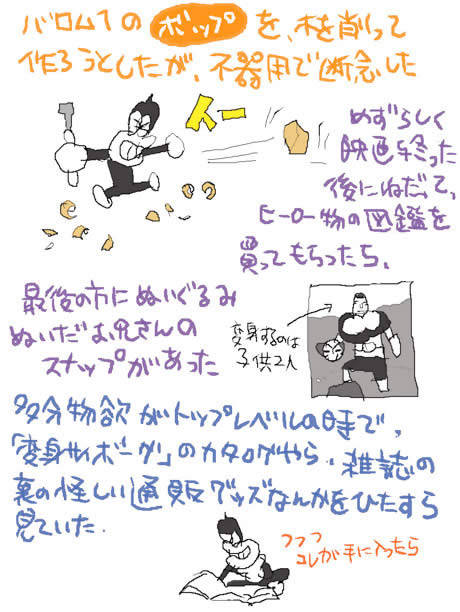 バロム1のボップを、木を削って
作ろうとしたが、不器用で断念した
イー
めずらしく
映画を終った
後にねだって、
ヒーロー物の図鑑を
買ってもらったら、
最後の方にぬいぐるみ
ぬいだお兄さんの
スナップがあった
変身するのは
子供2人
多分物欲がトップレベルの時で、
「変身サイボーグ」のカタログやら、雑誌の
裏の怪しい通販グッズなんかをひたすら
見ていた。
フフフ
コレが手に入ったら